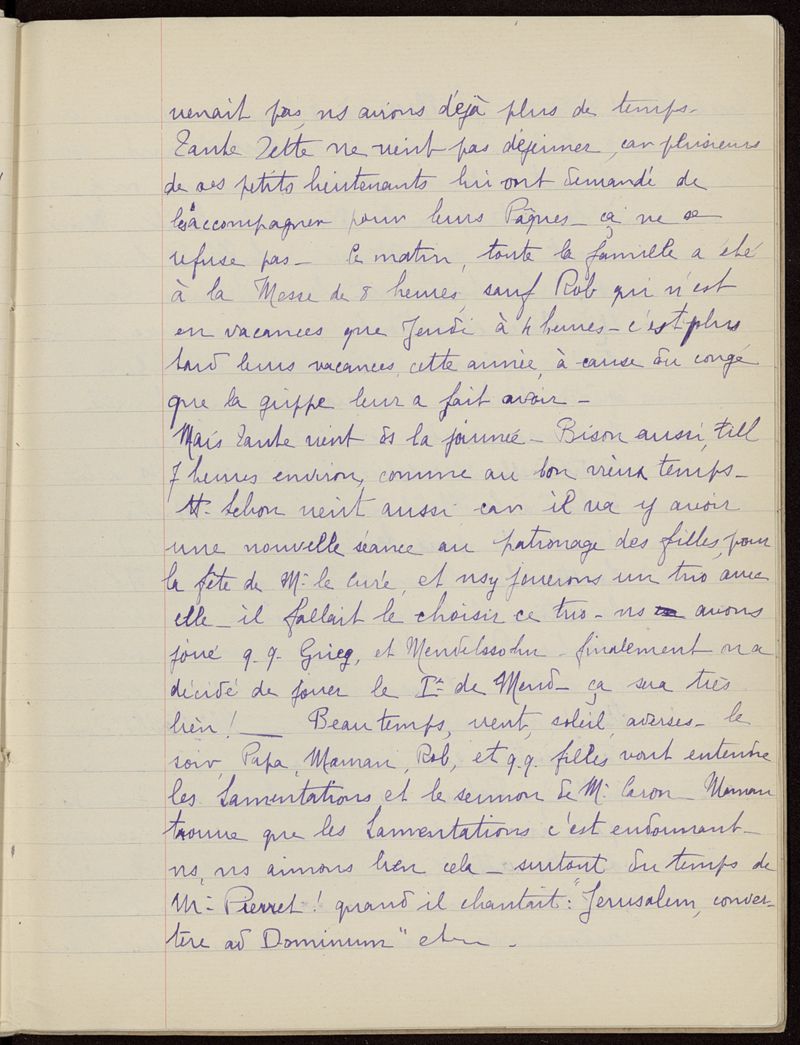 venait pas, ns avions déjà plus de temps-
Tante Zette ne vient pas déjeuner, car plusieurs
de ses petits lieutenants lui ont demandé de
les accompagner pour leurs Pâques - ça ne se
refuse pas - Ce matin, toute la famille a été
à la Messe de 8 heures, sauf Rob qui n'est
en vacances que Jeudi à 4 heures - c'est plus
tard leurs vacances, cette année, à cause du congé
que la grippe leur a fait avoir -
Mais Tante vient ds la journée - Bison aussi, till
7 heures environ, comme au bon vieux temps -
Lehon vient aussi car il va y avoir
une nouvelle séance au patronage des filles, pour
la fête de Mr le Curé, et ns y jouerons un trio avec
elle - il fallait le choisir ce trio - ns avons
joué q.q. Grieg, et Mendelssohn - finalement on a
décidé de jouer le Ier de Mend - ça sera très
bien ! — Beau temps, vent, soleil, averses - le
soir, Papa, Maman, Rob, et q.q. filles vont entendre
les Lamentations et le sermon de Mr Caron - Maman
trouve que les Lamentations c'est endormant -
ns, ns aimons bien cela - surtout du temps de
Mr Pierret ! quand il chantait : "Jerusalem, conver-
tere ad Dominum" etc -